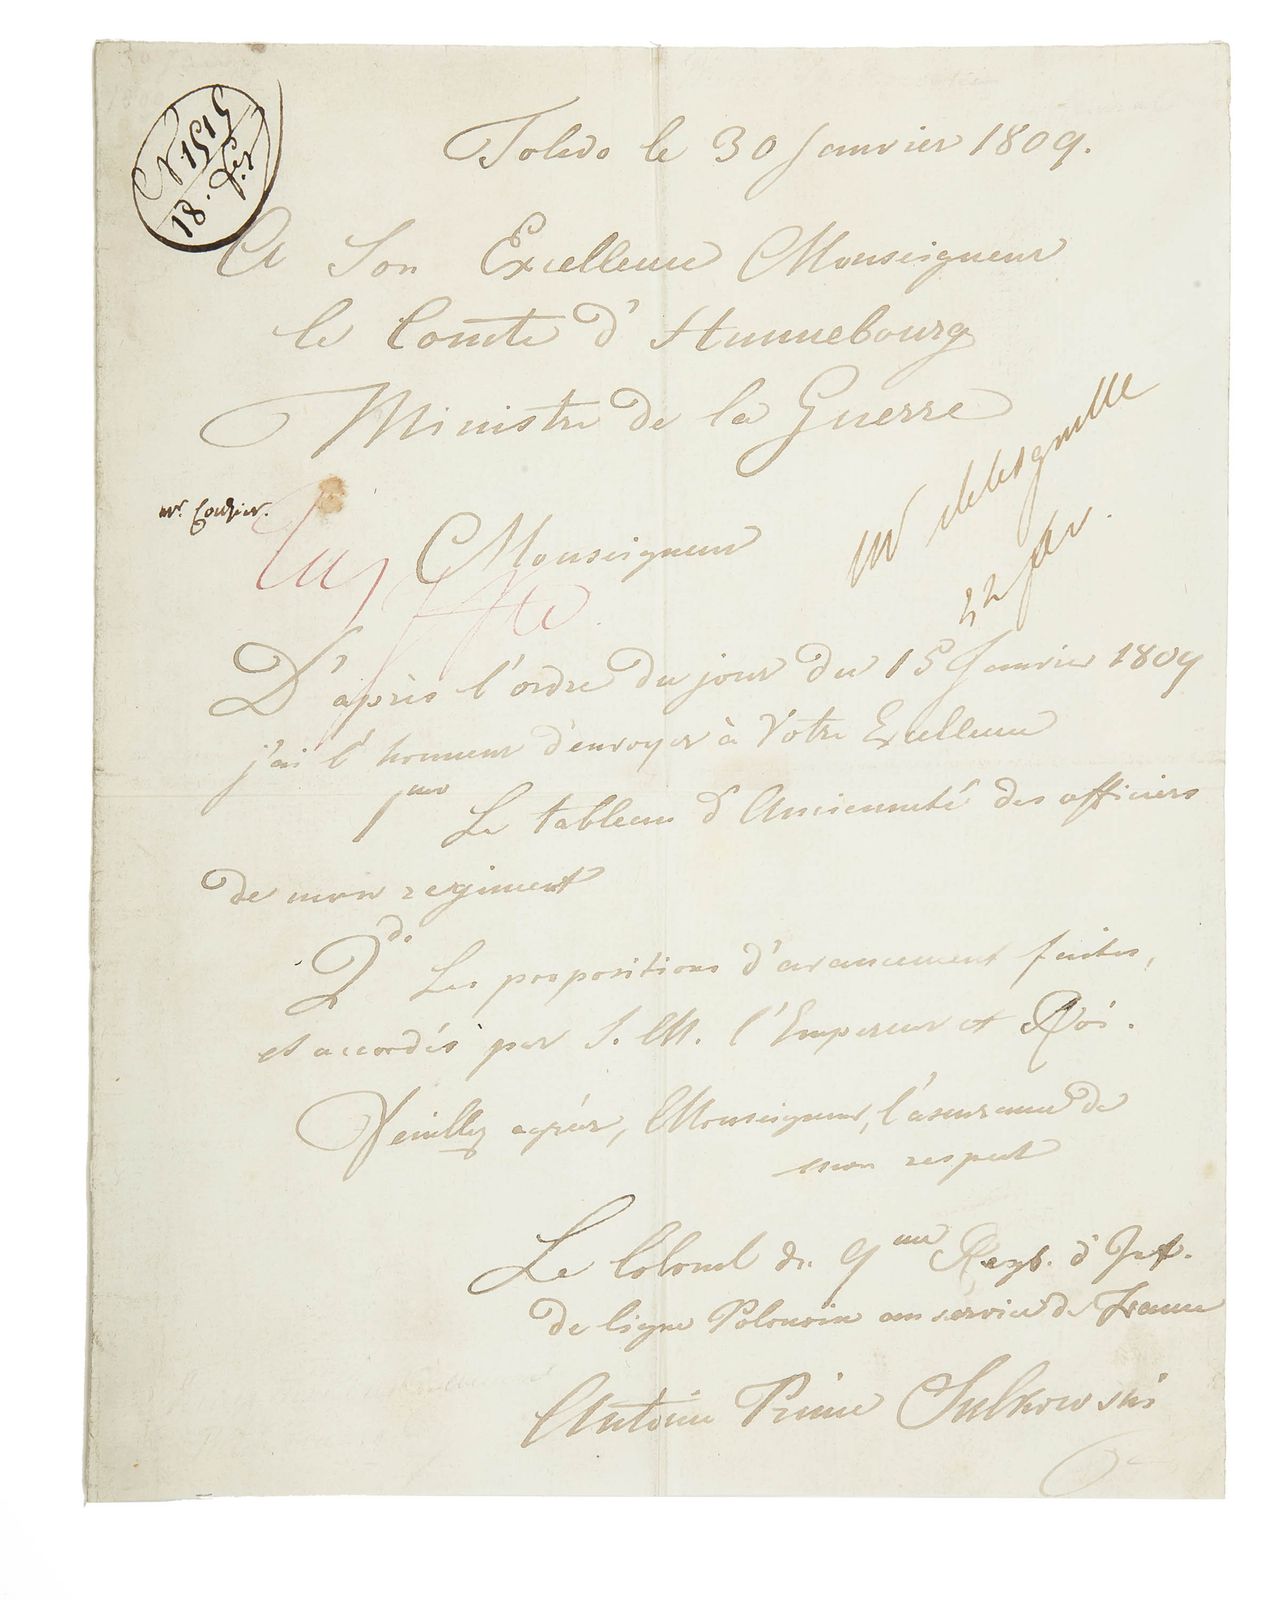 N 1515
18. fév
Toledo le 30 Janvier 1809.
A Son Excellence Monseigneur
le Comte d'Hunnebourg
Ministre de la Guerre
mr
Monseigneur
Mr
22 fév.
D'après l'ordre du jour du 15 Janvier 1809
j'ai l'honneur d'envoyer à Votre Excellence
1mo Le tableau d'Ancienneté des officiers
de mon regiment
2do Les propositions d'avancement faites,
et accordés par S. M. l'Empereur et Roi.
Veuillez agréer, Monseigneur, l'assurance de
mon respect
Le Colonel du 9me Regt. d'Inf.
de ligne Polonois au service de France
Antoine Prince Sulkowski